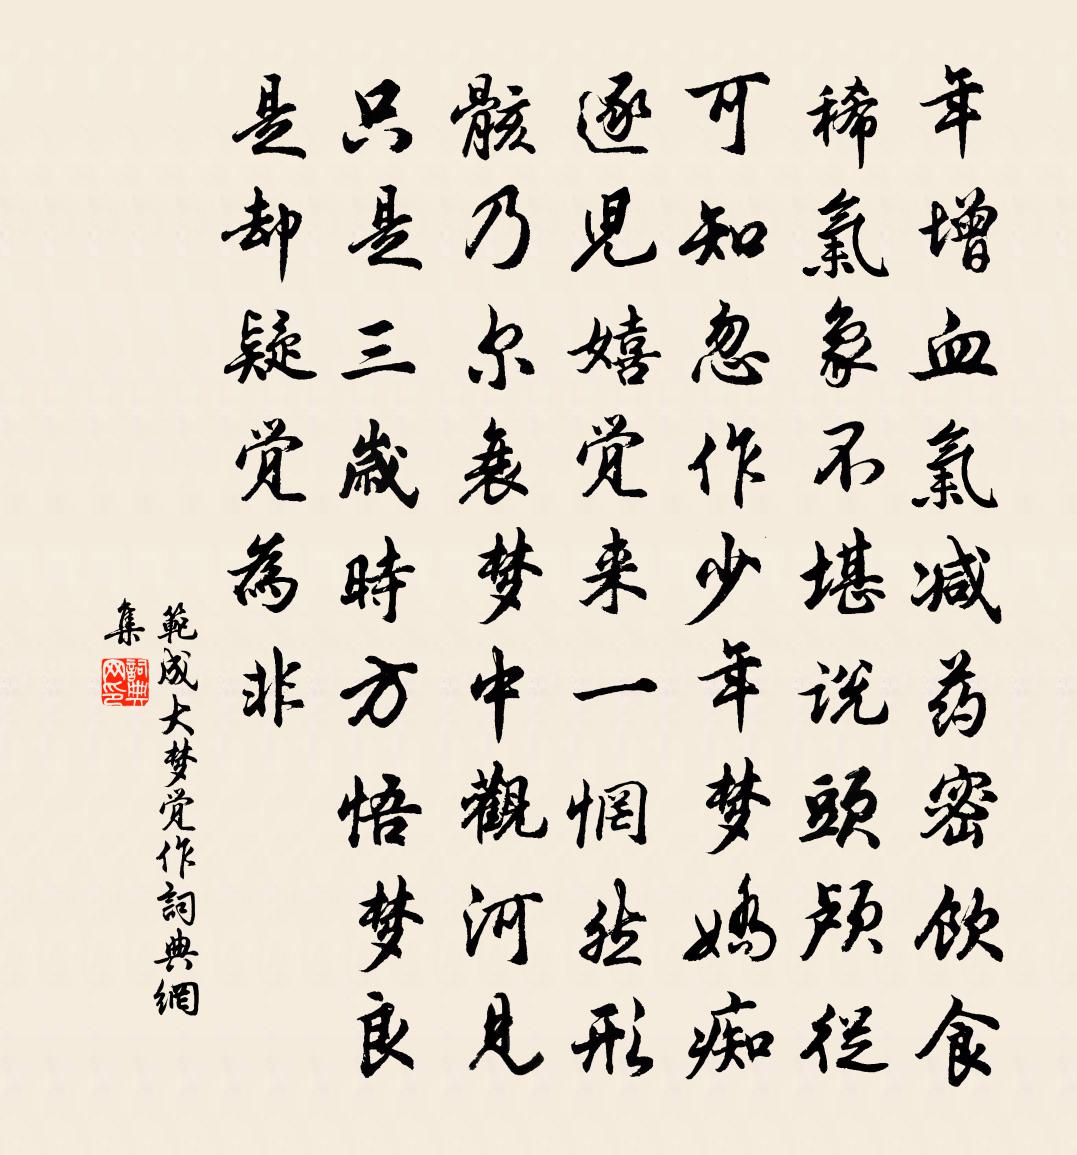 年增血氣減药密飲食
稀氣象不堪説頭顱從
可知忽作少年梦嬌痴
逐児嬉觉来一惘然形
骸乃尔衰梦中觀河見
只是三歲時方悟梦良
是却疑觉為非
範成大梦觉作詞典網
集
詞典网印